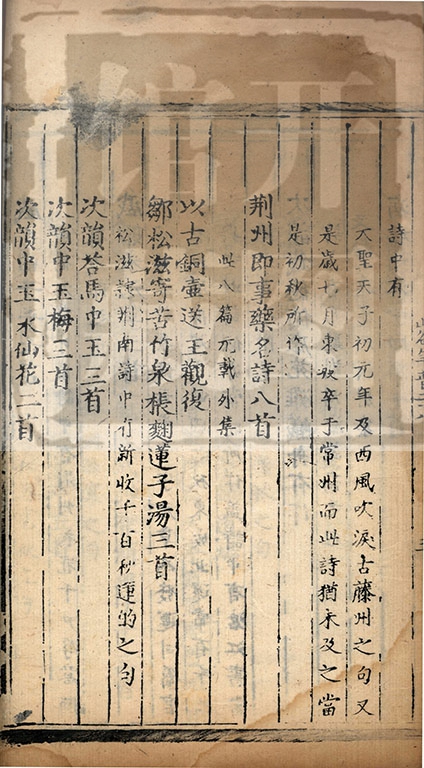 詩中有
大聖天子初元年及西風吹淚古藤州之句又
是歲七月東坡卒于常州而此詩猶未及之當
是初秋所作
荆州即事藥名詩八首
此八篇元載外集
以古銅壺送王觀復
鄒松滋寄苦竹泉棖麴蓮子湯三首
松滋隸荆南詩中有新收千百秋蓮的之句
次韻荅馬中玉三首
次韻中玉梅三首
次韻中玉水仙花二首